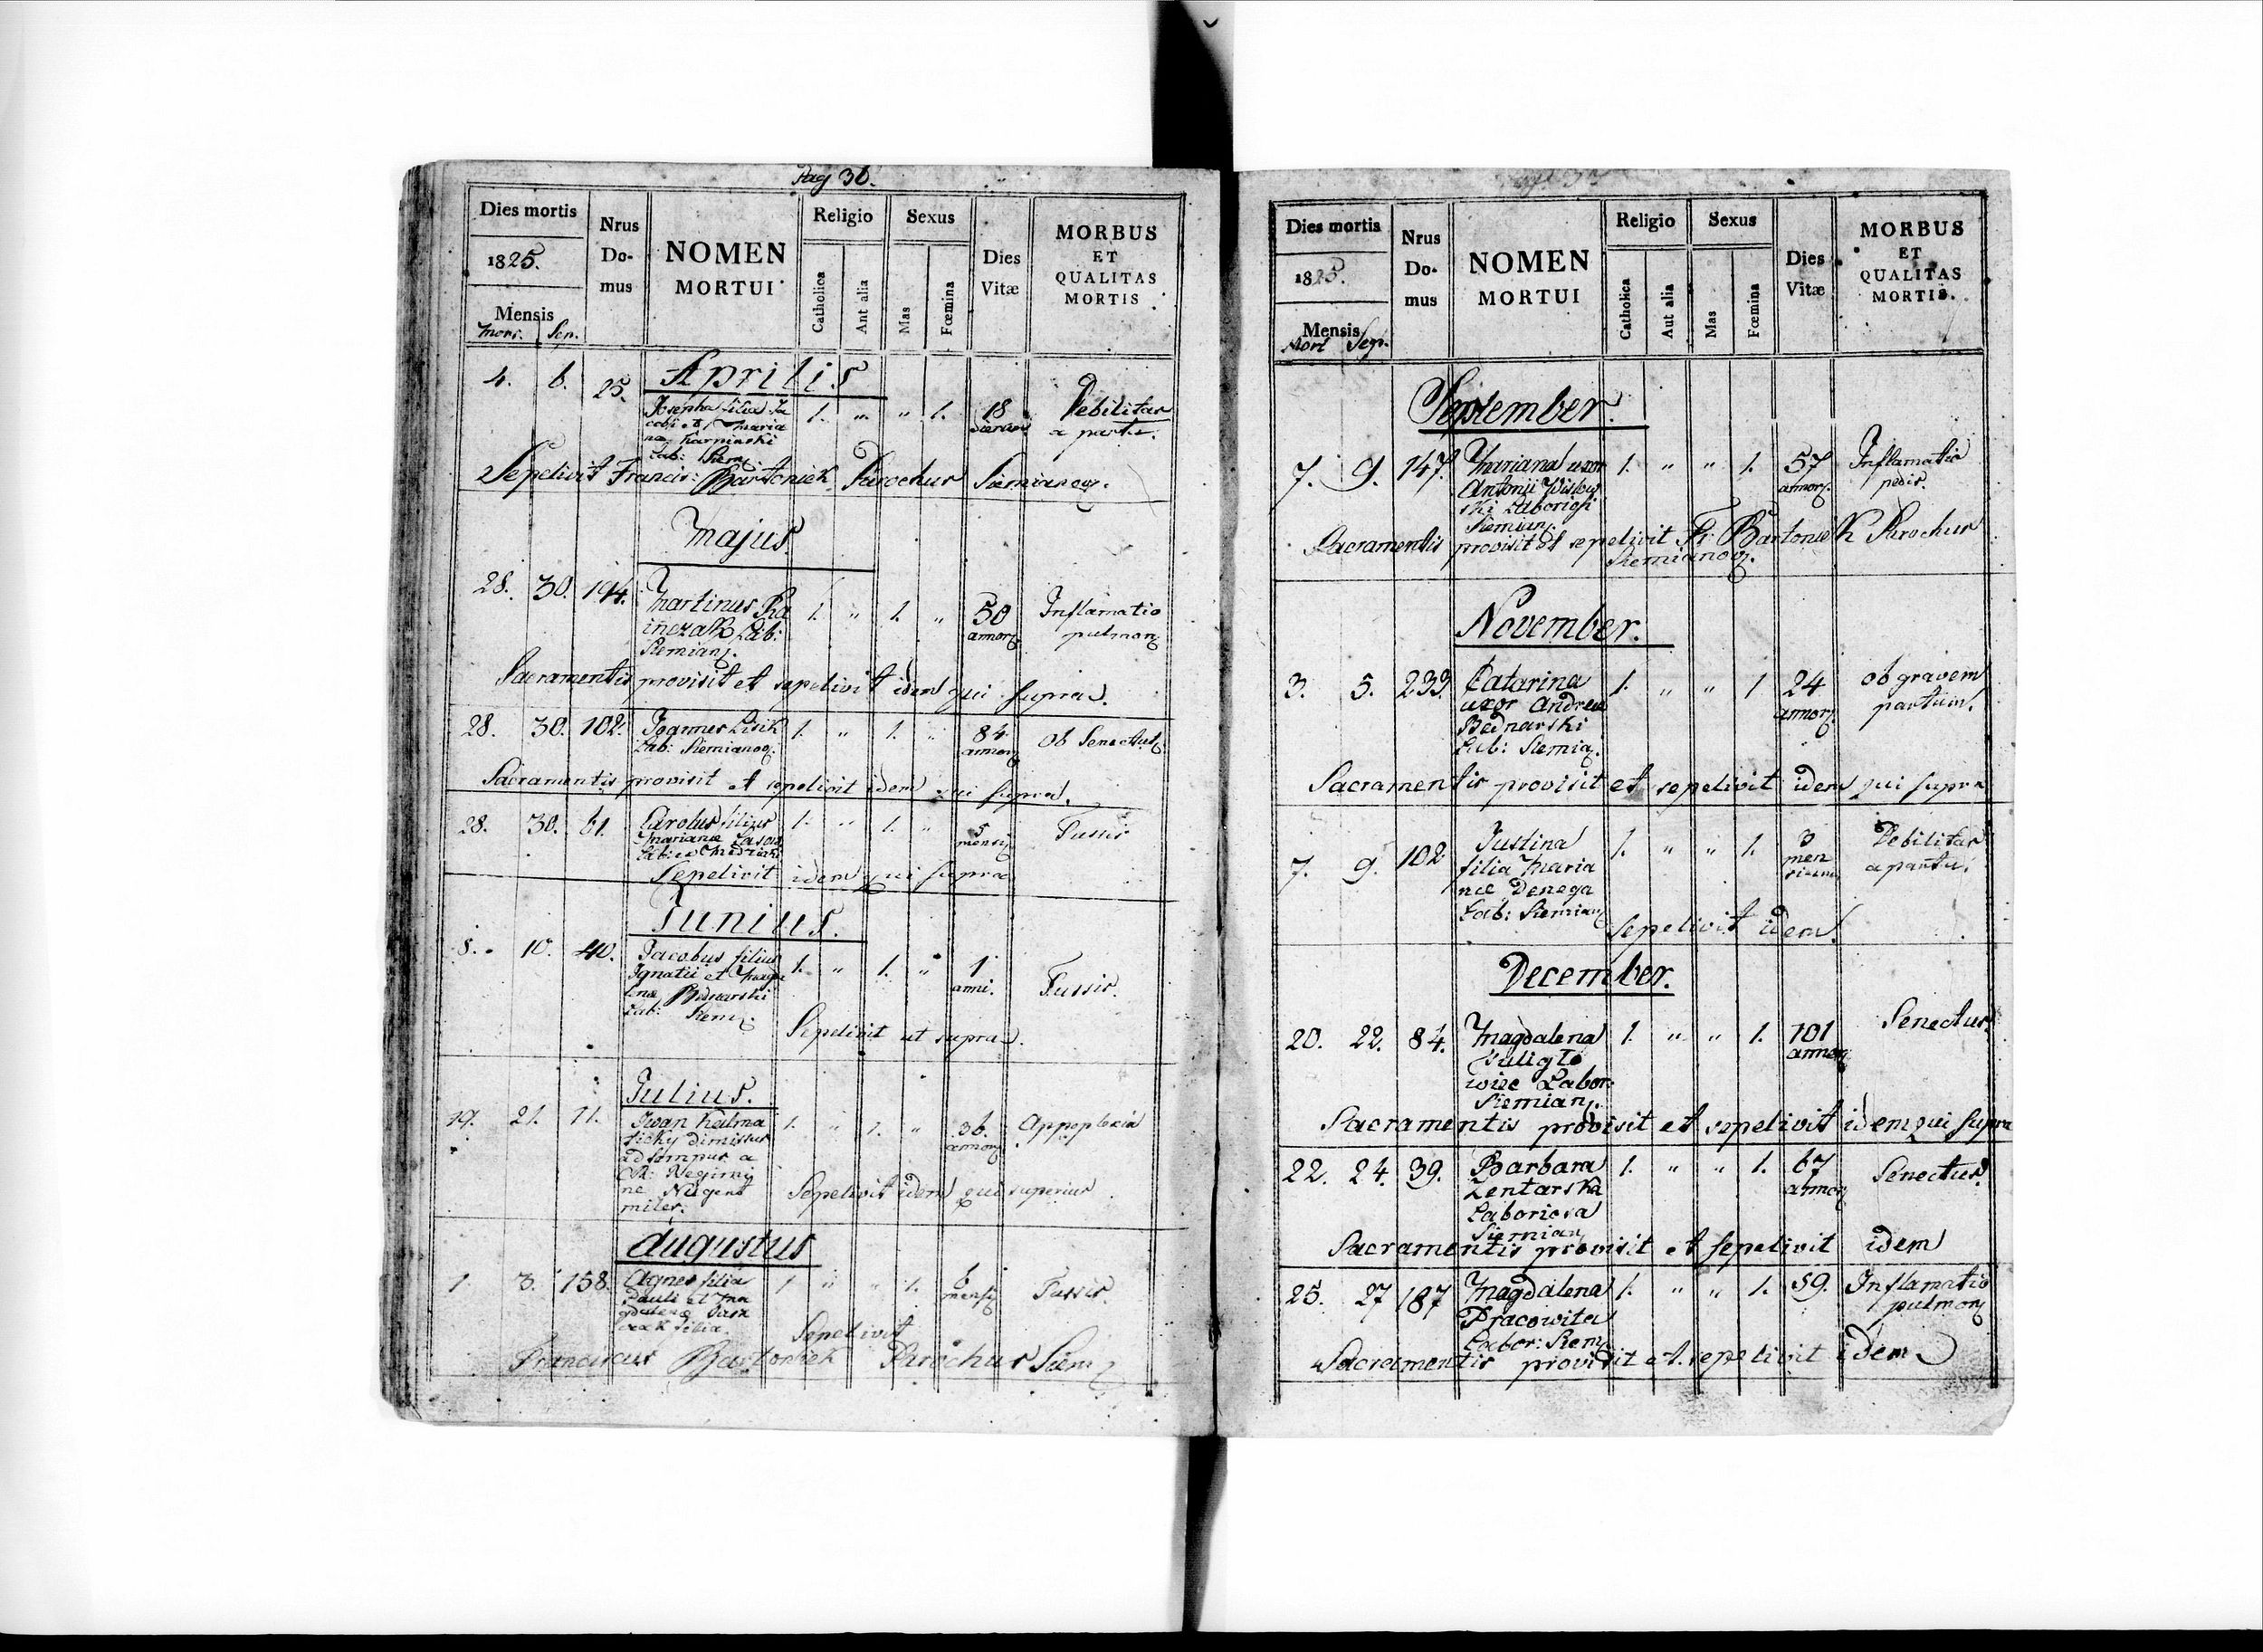 Pag 36.
Dies mortis
1825.
Mensis
Mort. Sep.
Nrus
Do-
mus
NOMEN
MORTUI
Religio
Catholica
Aut alia
Sexus
Mas
Fœmina
Dies
Vitæ
MORBUS
ET
QUALITAS
MORTIS
Aprilis
4. 6. 25. Josepha filia Ja 1. " " 1. 18 Debilitas
cobi et Maria dierum a partu.
nae Karpinski
Lab: Siem
Sepelivit Francis: Bartoniek Parochus Siemianov.
Majus
28. 30. 194. Martinus 1. " 1. " 50 Inflamatio
Lab: annor pulmon
Siemian.
Sacramentis provisit et sepelivit idem qui supra.
28. 30. 102. Joannes Lisik 1. " 1. " 84 ob Senectut
Lab: Siemianov. annor
Sacramentis provisit et sepelivit idem qui supra.
28. 30. 61. Carolus filius 1. " 1. " 5 Tussis
Marianæ mensi
Sepelivit idem qui supra
Junius.
8. 10. 40. Jacobus filius 1. " 1. " 1 Tussis.
Ignatii et Magda anni.
lenæ Bednarski
Lab: Siem.
Sepelivit ut supra.
Julius.
19. 21. 11. Iwan Kalma 1. " 1. " 36. Appoplexia
sicky dimissus annor
ad a
CR: Regimi
ne Nugent
miles.
Sepelivit idem qui superius
Augustus
1. 3. 158. Agnes filia 1 " " 1. 6 Tussis.
Pauli et Ma mensi
gdalenæ
filia.
Sepelivit
Franciscus Bartoniek Parochus Siem
Dies mortis
1825.
Mensis
Mort Sep.
Nrus
Do-
mus
NOMEN
MORTUI
Religio
Catholica
Aut alia
Sexus
Mas
Fœmina
Dies
Vitæ
MORBUS
ET
QUALITAS
MORTIS.
September.
7. 9. 147. Mariana uxor 1. " " 1. 57 Inflamatio
Antonii Wislow annor. pedis.
ski Laboriosi
Siemian.
Sacramentis provisit et sepelivit Fr: Bartoniek Parochus
Siemianov.
November.
3. 5. 233. Catarina 1. " " 1 24 ob gravem
uxor Andreæ annor. partum.
Bednarski
Lab: Siemia.
Sacramentis provisit et sepelivit idem qui supra
7. 9. 102 Justina 1. " " 1. 3 Debilitas
filia Maria men a partu.
næ Denega sium
Lab: Siemian
Sepelivit idem.
December.
20. 22. 84. Magdalena 1. " " 1. 101 Senectus.
annor
Labor:
Siemian.
Sacramentis provisit et sepelivit idem qui supra
22. 24. 39. Barbara 1. " " 1. 67 Senectus.
Zentarska annor
Laboriosa
Siemian
Sacramentis provisit et sepelivit idem
25. 27 187 Magdalena 1. " " 1. 59. Inflamatio
Pracowita pulmon
Labor: Siem
Sacramentis provisit et sepelivit idem